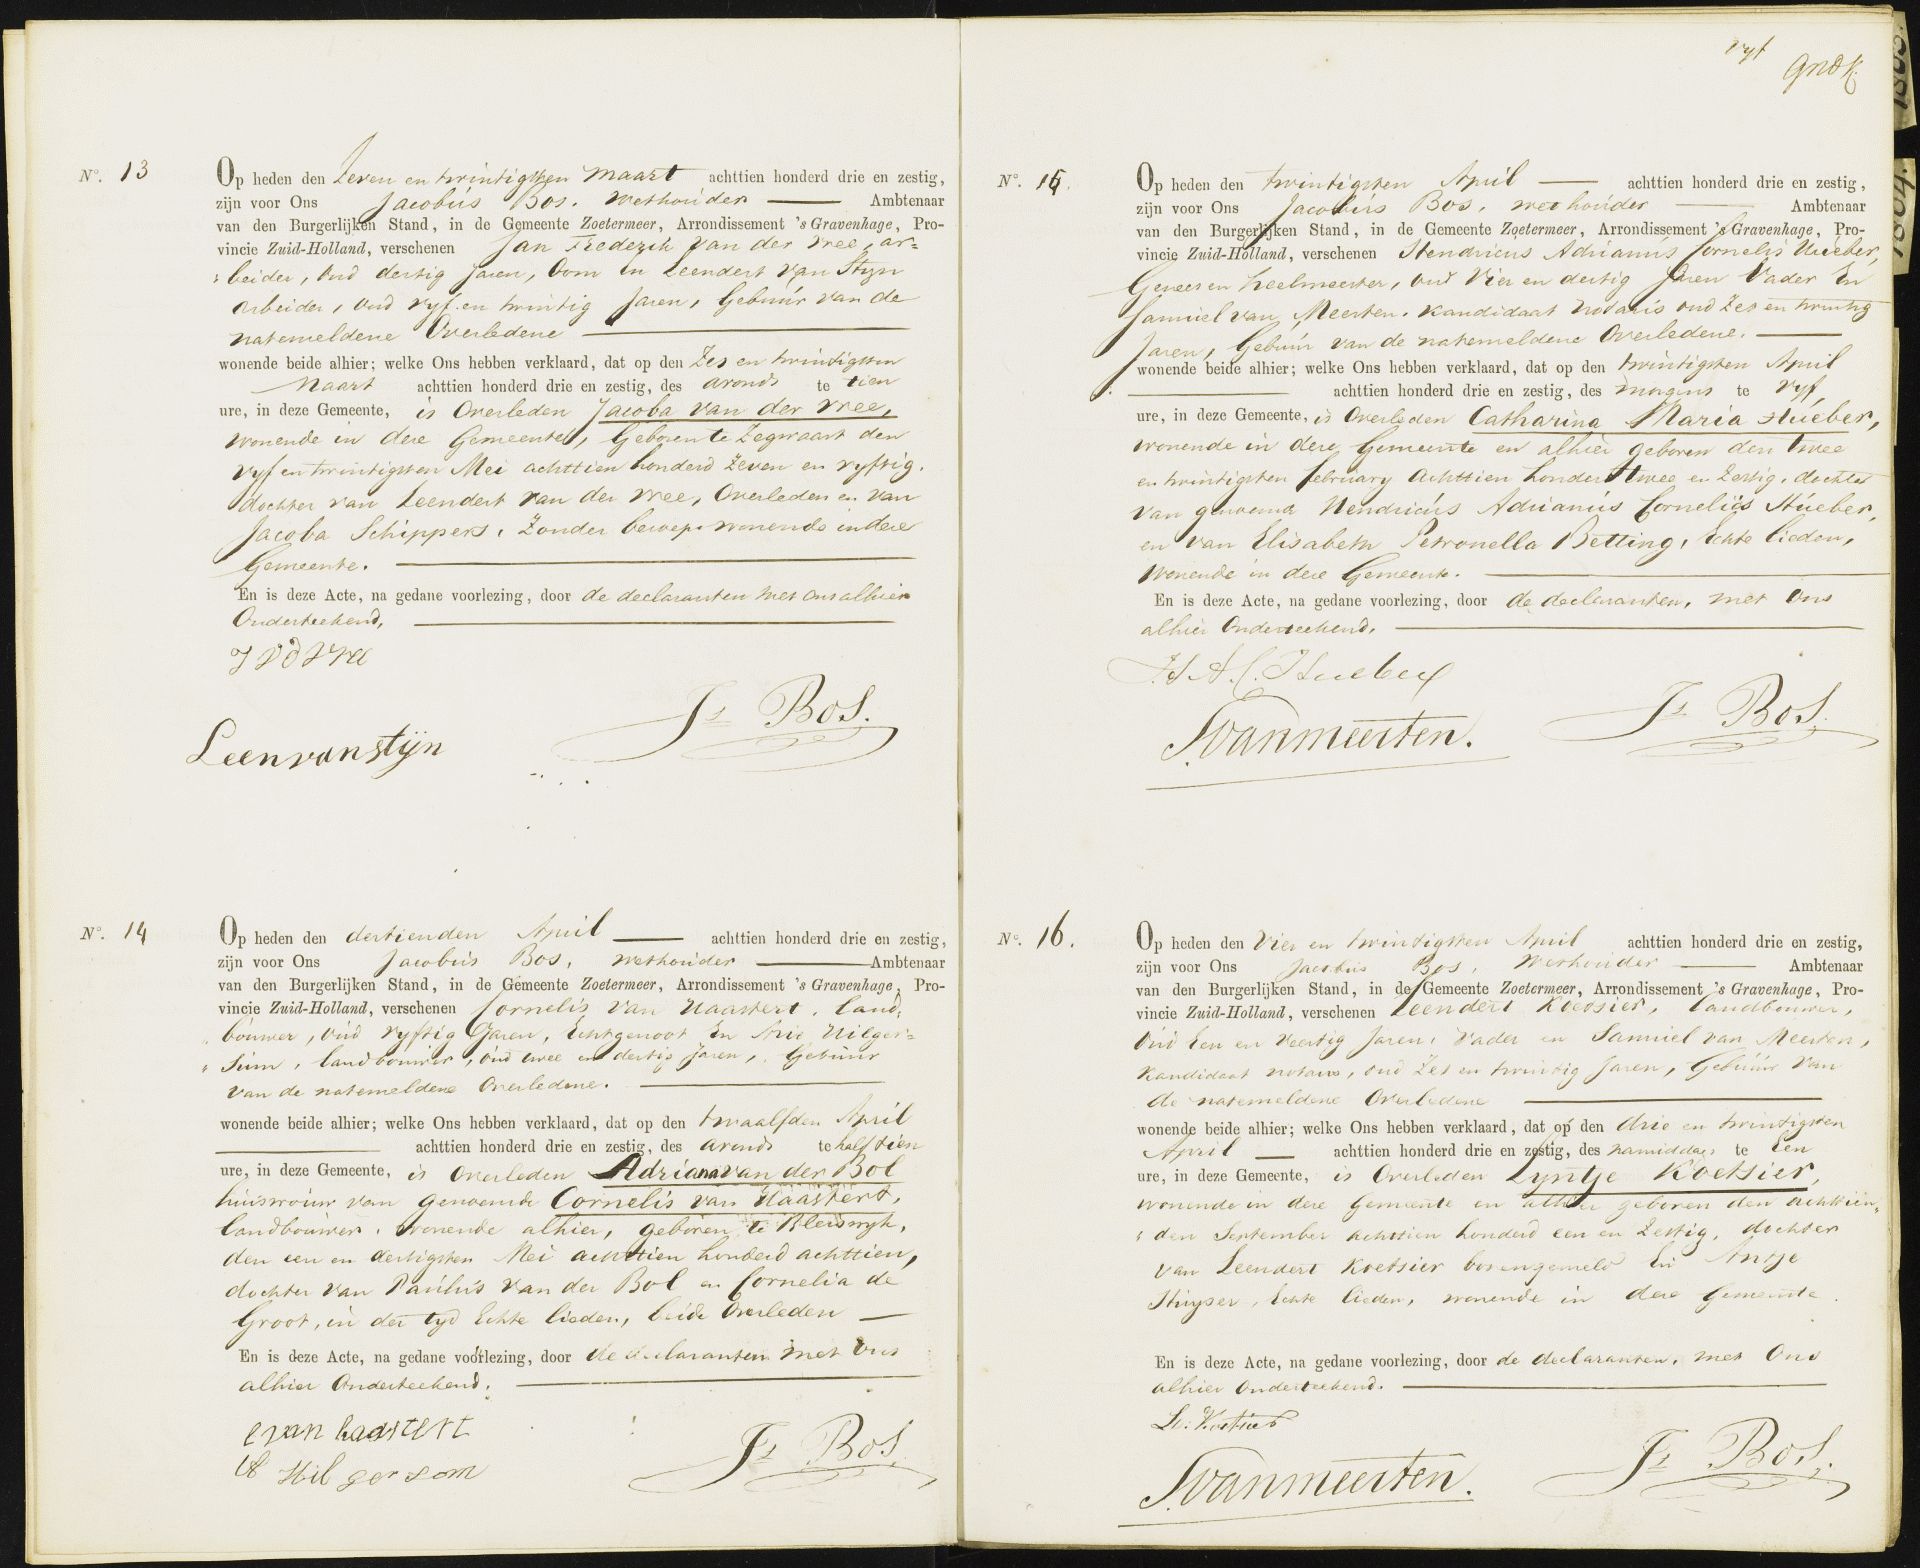 vyf
N°. 13
Op heden den Zeven en twintigsten Maart achttien honderd drie en zestig,
zijn voor Ons Jacobús Bos, wethoúder Ambtenaar
van den Burgerlijken Stand, in de Gemeente Zoetermeer, Arrondissement 's Gravenhage, Pro-
vincie Zuid-Holland, verschenen Jan Frederik van der Vree, ar=
beider, oud dertig Jaren, Oom en Leendert van Styn
arbeider, oud vyf en twintig Jaren, Gebuúr van de
natemeldene Overledene
wonende beide alhier; welke Ons hebben verklaard, dat op den Zes en twintigsten
Maart achttien honderd drie en zestig, des avonds te tien
ure, in deze Gemeente, is Overleden Jacoba van der Vree,
wonende in deze Gemeente, Geboren te Zegwaart den
vyf en twintigsten Mei achttien honderd Zeven en vyftig.
dochter van Leendert van der Vree, Overleden en van
Jacoba Schippers, Zonder beroep wonende in deze
Gemeente.
En is deze Acte, na gedane voorlezing, door de declaranten met ons alhier
Onderteekend,
J v d Vree
Js Bos.
Leen van stijn
N°. 14
Op heden den dertienden April achttien honderd drie en zestig,
zijn voor Ons Jacobús Bos, wethoúder Ambtenaar
van den Burgerlijken Stand, in de Gemeente Zoetermeer, Arrondissement 's Gravenhage, Pro-
vincie Zuid-Holland, verschenen Cornelis van Haastert, Land,
bouwer, oúd vyftig Jaren, Echtgenoot En Arie Hilger=
sum, landbouwer, oúd twee en dertig Jaren, Gebúúr
van de natemeldene Overledene.
wonende beide alhier; welke Ons hebben verklaard, dat op den twaalfden April
achttien honderd drie en zestig, des avonds te half tien
ure, in deze Gemeente, is Overleden Adriana van der Bol
huisvroúw van genoemde Cornelis van Haastert,
landboúwer, wonende alhier, geboren te Bleiswyk,
den een en dertigsten Mei achttien honderd achttien,
dochter van Paúlús van der Bol en Cornelia de
Groot, in der tyd Echte lieden, beide Overleden
En is deze Acte, na gedane voorlezing, door de declaranten met Ons
alhier Onderteekend.
C van haastert
Hilgersom
Js Bos.
N°. 15.
Op heden den twintigsten April achttien honderd drie en zestig,
zijn voor Ons Jacobús Bos, wethoúder Ambtenaar
van den Burgerlijken Stand, in de Gemeente Zoetermeer, Arrondissement 's Gravenhage, Pro-
vincie Zuid-Holland, verschenen Hendricus Adrianús Cornelis Húeber,
Genees en heelmeester, oud Vier en dertig Jaren Vader En
Samúel van Meerten, kandidaat notaris oud Zes en twintig
Jaren, Gebuúr van de natemeldene Overledene.
wonende beide alhier; welke Ons hebben verklaard, dat op den twintigsten April
achttien honderd drie en zestig, des morgens te vyf
ure, in deze Gemeente, is Overleden Catharina Maria Húeber,
wonende in deze Gemeente en alhier geboren den twee
en twintigsten february achttien honderd twee en Zestig, dochter
van genoemde Hendricús Adrianús Cornelis Húeber,
en van Elisabeth Petronella Betting, Echte lieden,
wonende in deze Gemeente.
En is deze Acte, na gedane voorlezing, door de declaranten, met Ons
alhier Onderteekend.
H. A. C. Hueber
S. van meerten.
Js Bos.
N°. 16.
Op heden den Vier en twintigsten April achttien honderd drie en zestig,
zijn voor Ons Jacobús Bos, wethoúder Ambtenaar
van den Burgerlijken Stand, in de Gemeente Zoetermeer, Arrondissement 's Gravenhage, Pro-
vincie Zuid-Holland, verschenen Leendert Koetsier, landbouwer,
Oúd Een en Veertig Jaren, Vader en Samúel van Meerten,
kandidaat notaris, oud Zes en twintig Jaren, Gebúúr van
de natemeldene Overledene
wonende beide alhier; welke Ons hebben verklaard, dat op den drie en twintigsten
April achttien honderd drie en zestig, des namiddags te Een
ure, in deze Gemeente, is Overleden Lyntje Koetsier,
wonende in deze Gemeente en alhier geboren den achttien,
den September achttien honderd een en Zestig, dochter
van Leendert Koetsier bovengemeld En Antje
Húyser, Echte lieden, wonende in deze Gemeente.
En is deze Acte, na gedane voorlezing, door de declaranten, met Ons
alhier Onderteekend.
Ln. Koetsier
S. van meerten.
Js Bos.